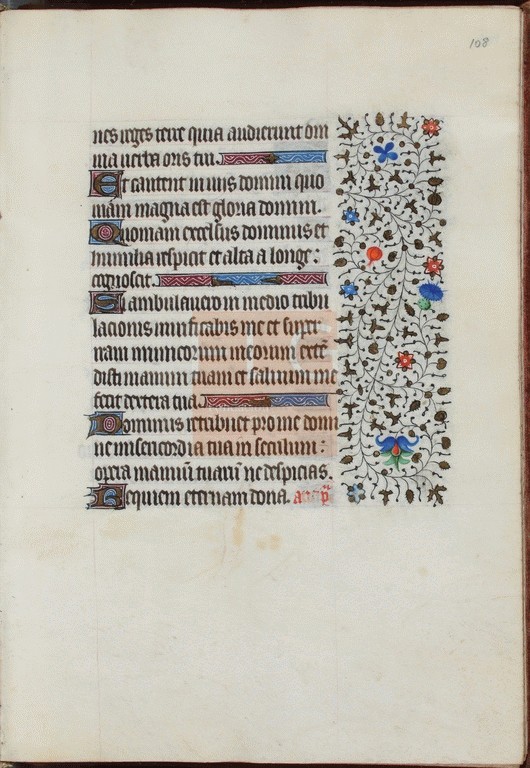 108
nes reges terre quia audierunt om
nia verba oris tui.
Et cantent in viis domini quo
niam magna est gloria domini.
Quoniam excelsus dominus et
humilia respicit et alta a longe:
cognoscit.
Si ambulavero in medio tribu
lacionis vivificabis me et super
iram inimicorum meorum exte
disti manum tuam et salvum me
fecit dextera tua.
Dominus retribuet pro me domi
ne misericordia tua in seculum:
opera manuū tuarū ne despicias.
Requiem eternam dona. anā p̄